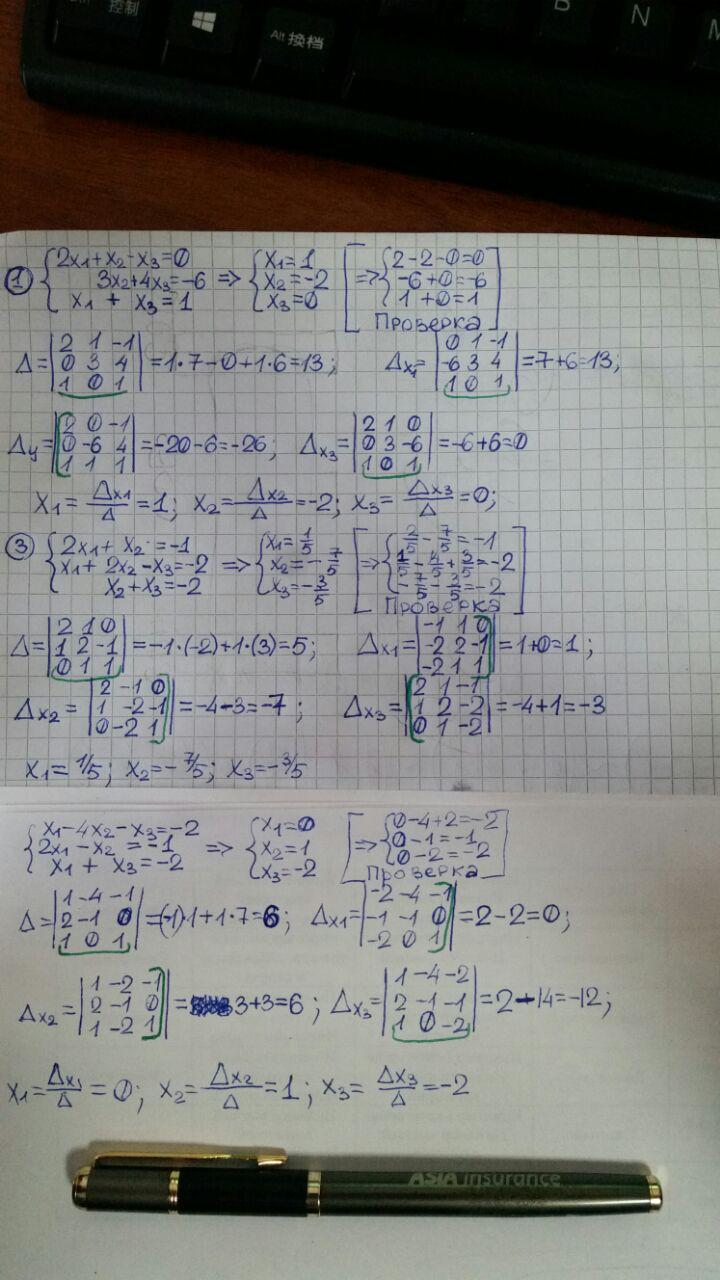 控制
Alt 换档
B
N
M
① { 2x1+x2-x3=0
3x2+4x3=-6
x1 + x3=1 => { x1=1
x2=-2
x3=0 [ => { 2-2-0=0
-6+0=-6
1+0=1
Проверка ]
Δ= | 2 1 -1
0 3 4
1 0 1 | =1·7-0+1·6=13; Δx1= | 0 1 -1
-6 3 4
1 0 1 | =7+6=13;
Δy= | 2 0 -1
0 -6 4
1 1 1 | =-20-6=-26; Δx3= | 2 1 0
0 3 -6
1 0 1 | =-6+6=0
X1= Δx1/Δ =1; x2= Δx2/Δ =-2; x3= Δx3/Δ =0;
③ { 2x1+ x2 =-1
x1+ 2x2-x3=-2
x2+x3=-2 => { x1=1/5
x2=-7/5
x3=-3/5 [ => { 2/5-7/5=-1
1/5-14/5+3/5=-2
-7/5-3/5=-2
Проверка ]
Δ= | 2 1 0
1 2 -1
0 1 1 | =-1·(-2)+1·(3)=5; Δx1= | -1 1 0
-2 2 -1
-2 1 1 | =1+0=1;
Δx2= | 2 -1 0
1 -2 -1
0 -2 1 | =-4-3=-7; Δx3= | 2 1 -1
1 2 -2
0 1 -2 | =-4+1=-3
x1=1/5; x2=-7/5; x3=-3/5
{ x1-4x2-x3=-2
2x1-x2 =-1
x1 + x3=-2 => { x1=0
x2=1
x3=-2 [ => { 0-4+2=-2
0-1=-1
0-2=-2
Проверка ]
Δ= | 1 -4 -1
2 -1 0
1 0 1 | =(-1)·1+1·7=6; Δx1= | -2 -4 -1
-1 -1 0
-2 0 1 | =2-2=0;
Δx2= | 1 -2 -1
2 -1 0
1 -2 1 | = 3+3=6; Δx3= | 1 -4 -2
2 -1 -1
1 0 -2 | =2-14=-12;
x1= Δx1/Δ =0; x2= Δx2/Δ =1; x3= Δx3/Δ =-2
ASIA insurance